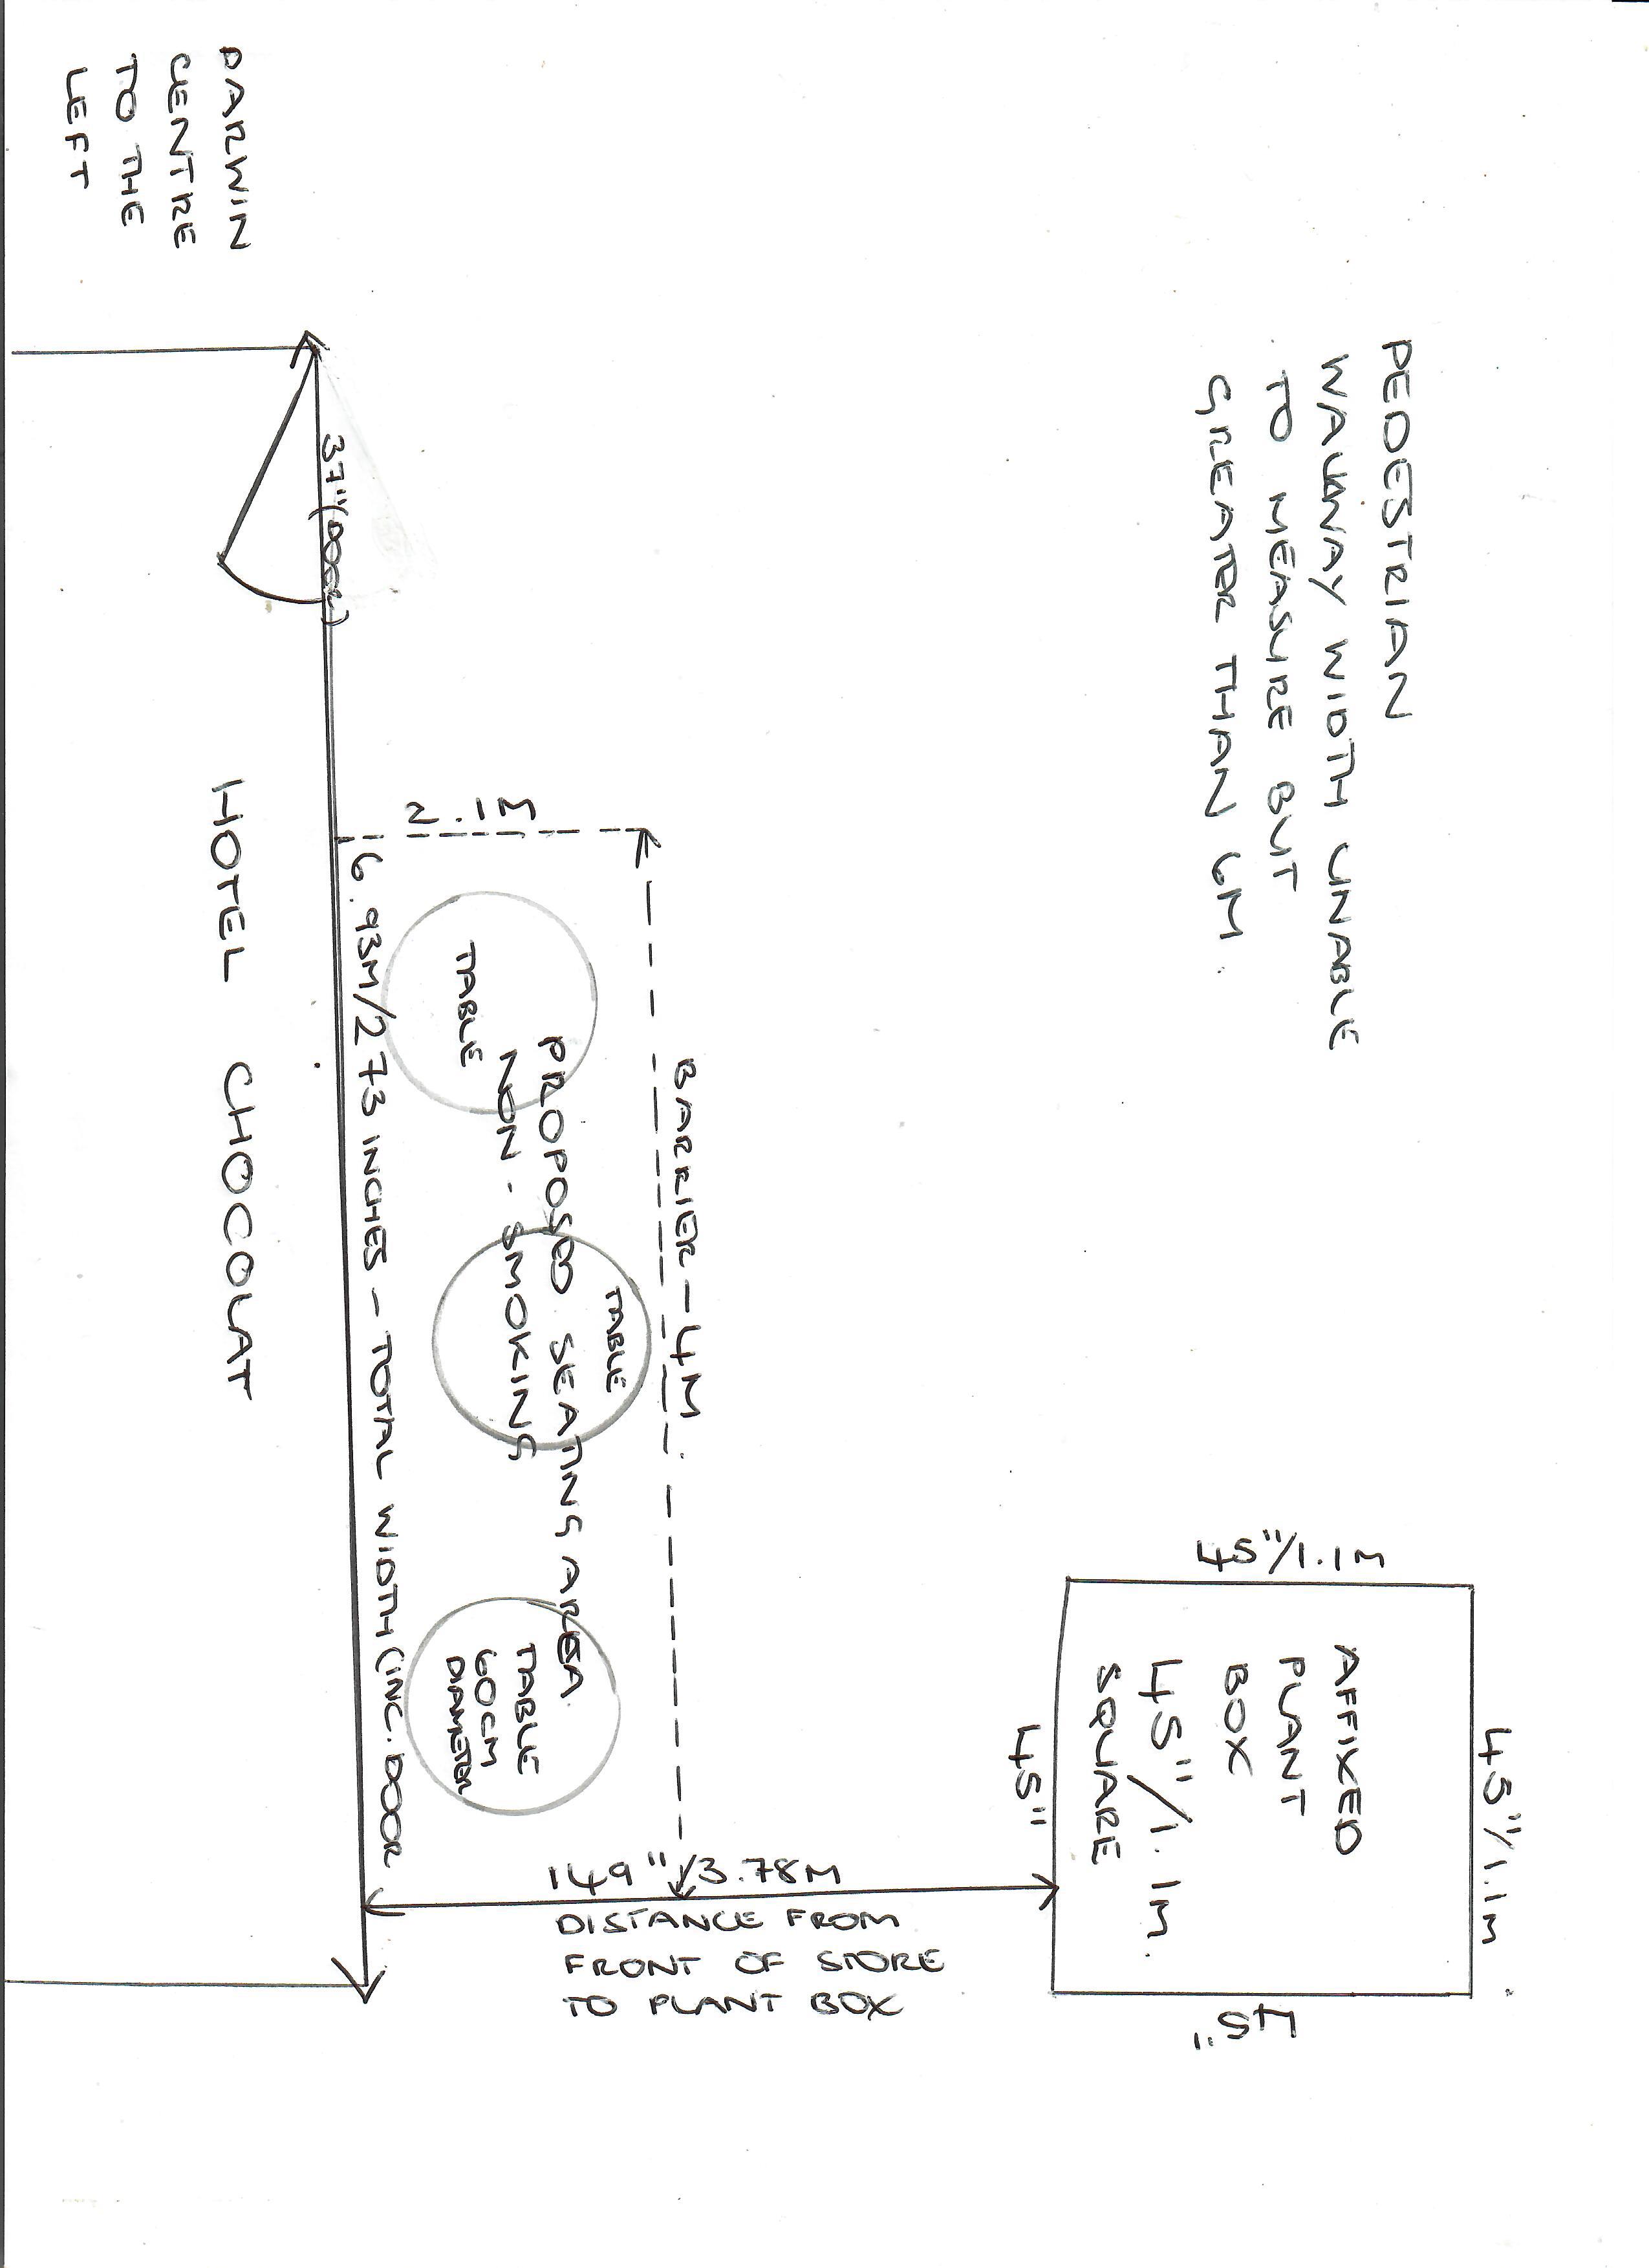 PEDESTRIAN
WALKWAY WIDTH UNABLE
TO MEASURE BUT
GREATER THAN 6M.
45"/1.1M
45"/1.1M
AFFIXED
PLANT
BOX
45"/1.1M.
SQUARE
45"
45"
BARRIER - 4M.
2.1M
TABLE
TABLE
PROPOSED SEATING AREA.
NON-SMOKING
TABLE
60CM
DIAMETER
149"/3.78M
DISTANCE FROM
FRONT OF STORE
TO PLANT BOX
37"(DOOR)
6.93M/273 INCHES - TOTAL WIDTH (INC. DOOR
HOTEL CHOCOLAT
DARWIN
CENTRE
TO THE
LEFT